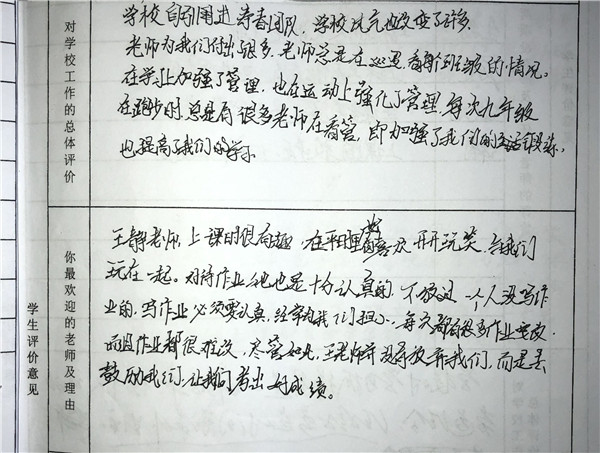 对学校工作的总体评价
学校自引进涛者团队,学校风气也改变了许多.
老师为我们付出很多.老师总是在巡逻,看每个班级的情况。
在学习上加强了管理,也在运动上强化了管理.每次九年级
在跑步时总是有很多老师在看管,即加强了我们的锻炼,
也提高了我们的学习
学生评价意见
你最欢迎的老师及理由
王静老师,上课时很有趣.在平日里喜欢开开玩笑,与我们
玩在一起。对待作业她也是十分认真的.不放过一个人没写作
业的,写作业必须要认真,经常为我们担心,每次都有很多作业要改
而且作业都很难改,尽管如此,王老师并没有放弃我们,而是去
鼓励我们,让我们考出好成绩。